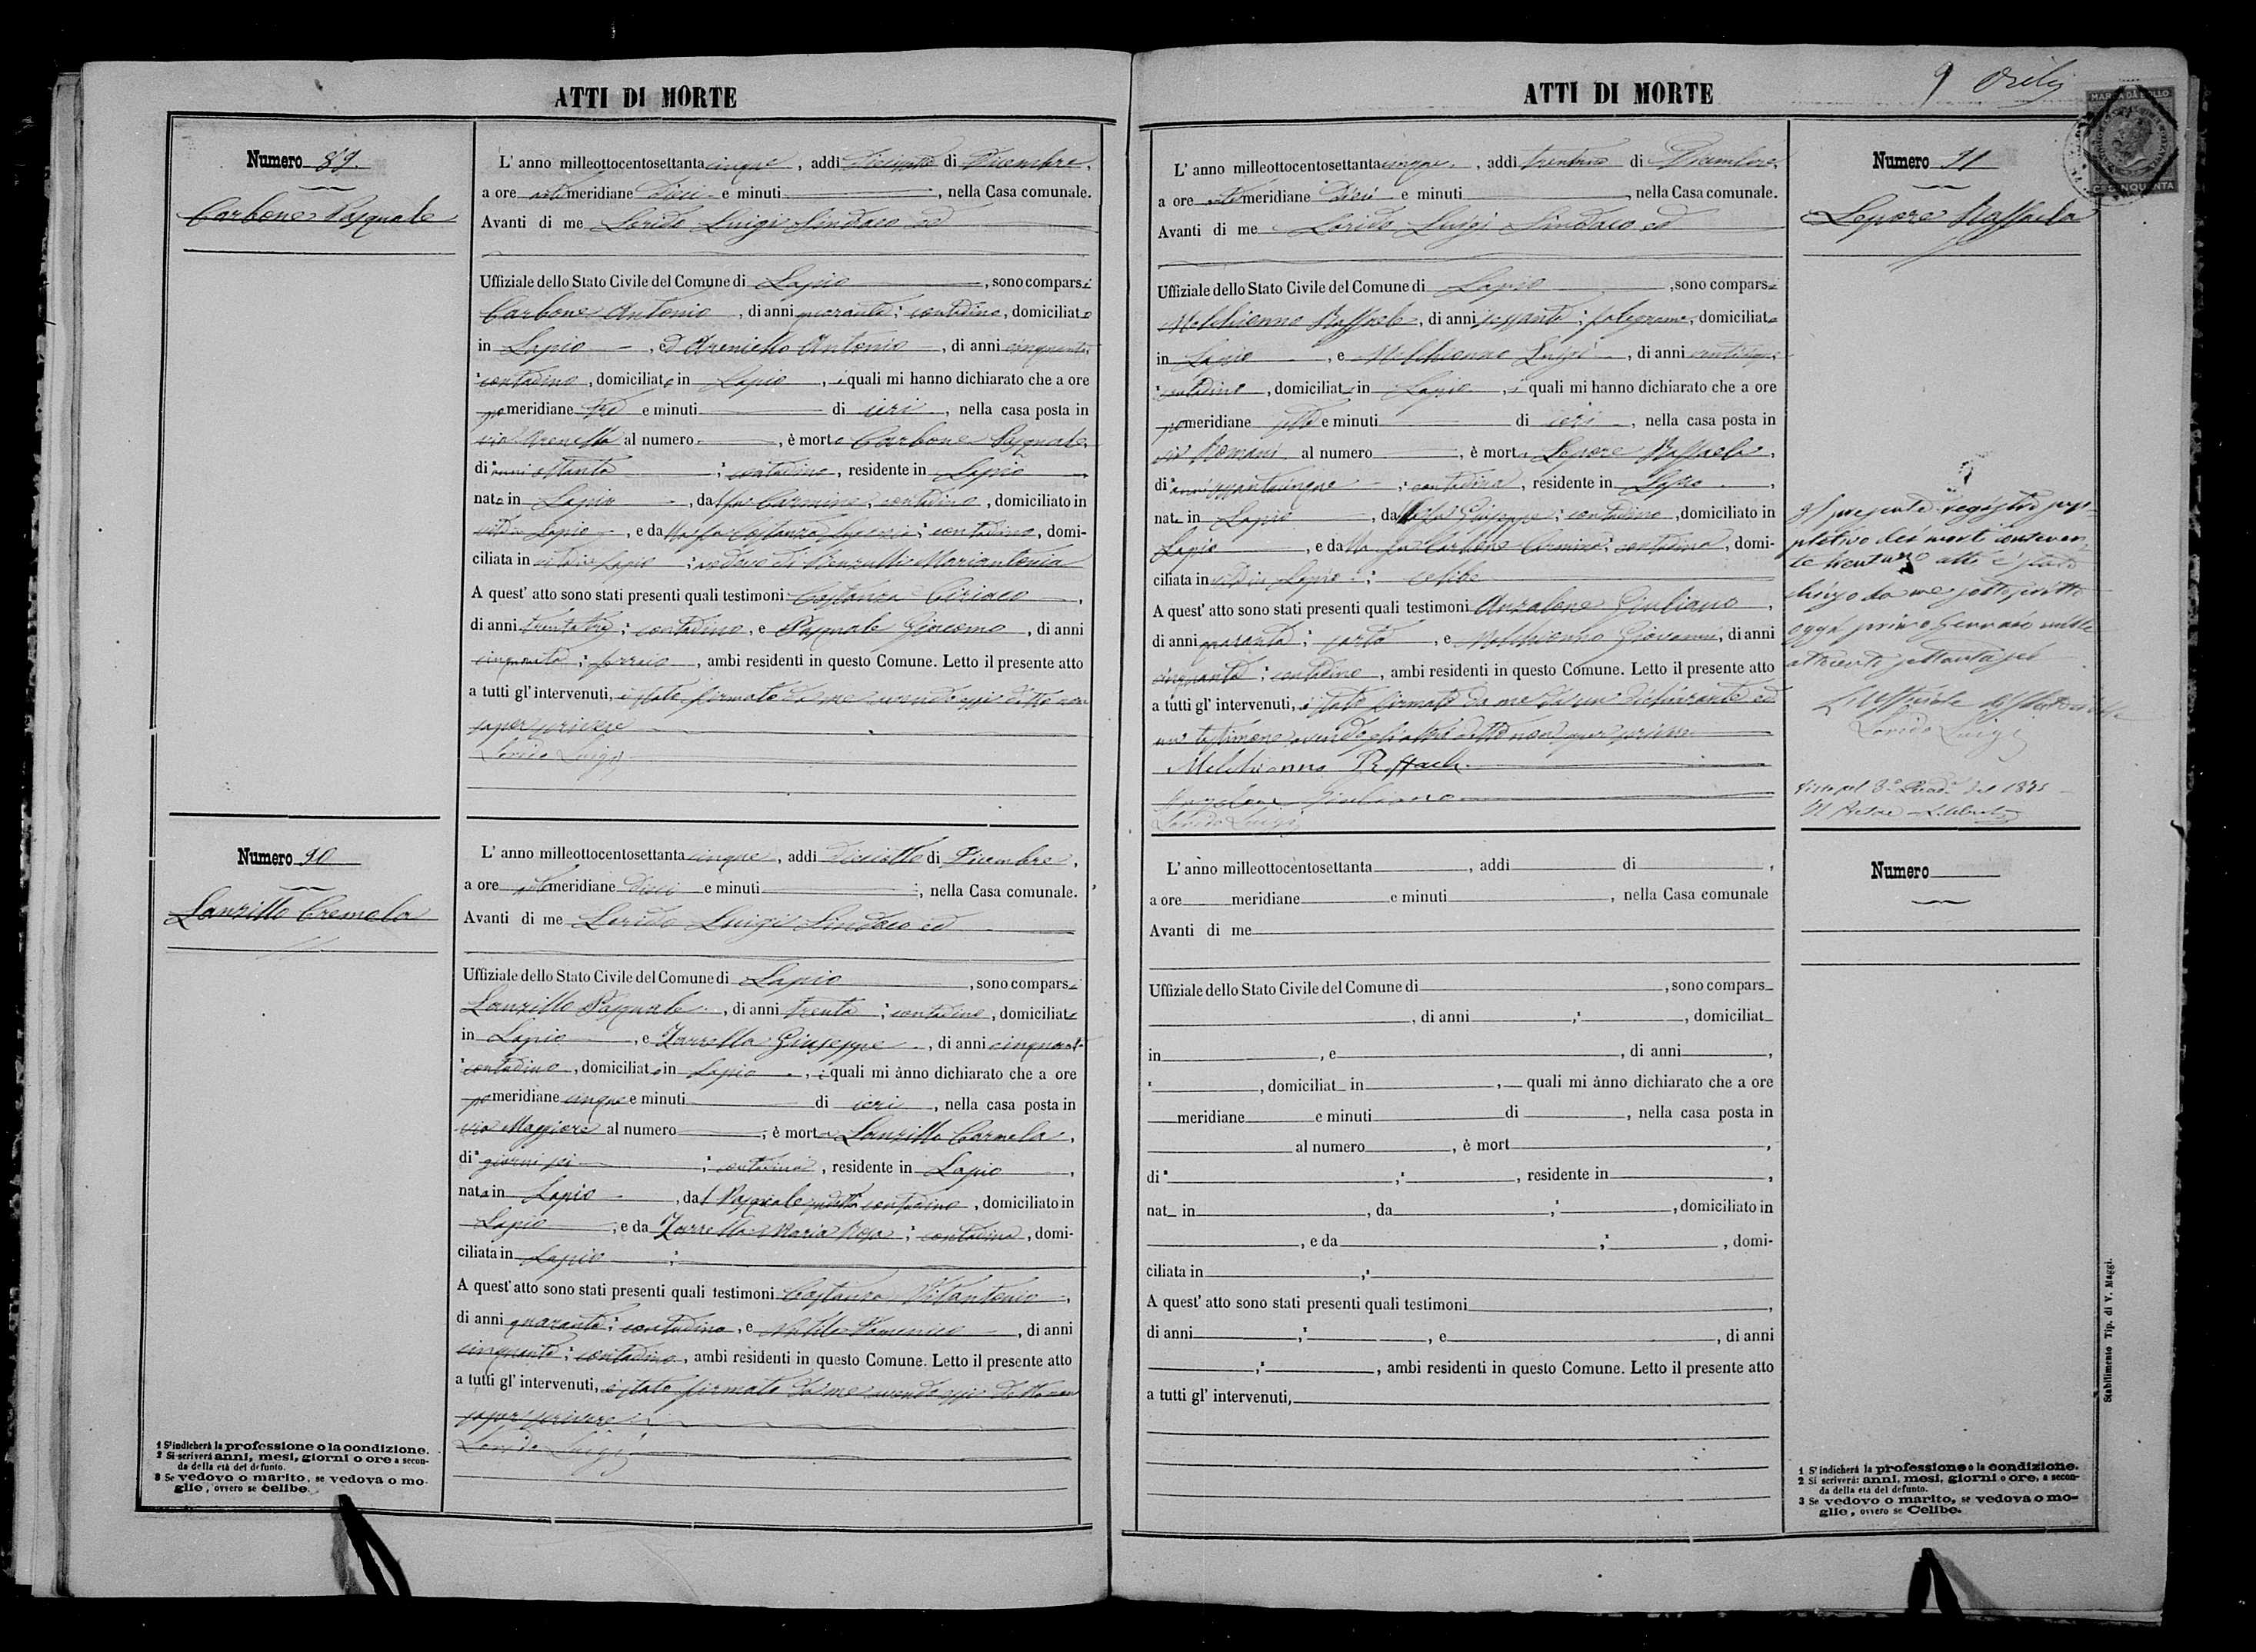 ATTI DI MORTE
Numero 89.
Carbone Pasquale
L' anno milleottocentosettanta cinque, addi di Dicembre,
a ore anti meridiane Dieci e minuti, nella Casa comunale.
Avanti di me Lorido Luigi Sindaco ed
Uffiziale dello Stato Civile del Comune di Lapio, sono comparsi
Carbone Antonio, di anni quaranta; contadino, domiciliato
in Lapio, ed Areniello Antonio, di anni cinquanta;
contadino, domiciliato in Lapio, i quali mi hanno dichiarato che a ore
pomeridiane tre e minuti di ieri, nella casa posta in
via al numero, è morto Carbone Pasquale,
di anni ottanta; contadino, residente in Lapio
nato in Lapio, da fu Carmine, contadino, domiciliato in
vita Lapio, e da fu Costanza; contadina, domi-
ciliata in vita in Lapio; vedovo di Mariantonia
A quest' atto sono stati presenti quali testimoni Costanza Ciriaco,
di anni trentatre; contadino, e Pasquale Giacomo, di anni
cinquanta;, ambi residenti in questo Comune. Letto il presente atto
a tutti gl' intervenuti, è stato firmato da me avendo essi detto non
saper scrivere
Lorido Luigi
Numero 90
Lanzillo Cremela
L' anno milleottocentosettanta cinque, addi diciotto di Dicembre,
a ore anti meridiane dieci e minuti, nella Casa comunale.
Avanti di me Lorido Luigi Sindaco ed
Uffiziale dello Stato Civile del Comune di Lapio, sono comparsi
Lanzillo Pasquale, di anni trenta; contadino, domiciliato
in Lapio, e Zarrella Giuseppe, di anni cinquant
contadino, domiciliato in Lapio, i quali mi ànno dichiarato che a ore
pomeridiane cinque e minuti di ieri, nella casa posta in
via Maggiore al numero, è morta Lanzillo Carmela,
di giorni sei; contadina, residente in Lapio,
nata in Lapio, dal Pasquale sudetto contadino, domiciliato in
Lapio, e da Zarrella Maria Rosa; contadina, domi-
ciliata in Lapio;
A quest' atto sono stati presenti quali testimoni Costanza Vitantonio,
di anni quaranta; contadino, e Domenico, di anni
cinquanta; contadino, ambi residenti in questo Comune. Letto il presente atto
a tutti gl' intervenuti, è stato firmato da me avendo essi detto non
saper scrivere
Lorido Luigi
1 S'indicherà la professione o la condizione.
2 Si scriverà anni, mesi, giorni o ore a secon-
da della età del defunto.
3 Se vedovo o marito, se vedova o mo-
glie, ovvero se celibe.
ATTI DI MORTE
MARCA DA BOLLO
CINQUANTA
Numero 91
Lepore Raffaela
L' anno milleottocentosettanta cinque, addi trentuno di Dicembre,
a ore anti meridiane Dieci e minuti, nella Casa comunale.
Avanti di me Lorido Luigi Sindaco ed
Uffiziale dello Stato Civile del Comune di Lapio, sono comparsi
Melchionno Raffaele, di anni sessanta; falegname, domiciliato
in Lapio, e Melchionno Luigi, di anni
contadino, domiciliati in Lapio, i quali mi hanno dichiarato che a ore
pomeridiane sette e minuti di ieri, nella casa posta in
via Romani al numero, è morta Lepore Raffaela,
di anni; contadina, residente in Lapio,
nata in Lapio, da fu Giuseppe; contadino, domiciliato in
Lapio, e da fu Carbone Carmina; contadina, domi-
ciliata in vita in Lapio; celibe
A quest' atto sono stati presenti quali testimoni Anzalone Giuliano,
di anni quaranta; sarto, e Melchionno Giovanni, di anni
cinquanta; contadino, ambi residenti in questo Comune. Letto il presente atto
a tutti gl' intervenuti, è stato firmato da me da un dichiarante ed
un testimone avendo gli altri detto non saper scrivere
Melchionno Raffaele
Anzalone Giuliano
Lorido Luigi
Il presente registro sup-
pletivo dei morti contenen-
te trentuno atti è stato
chiuso da me sottoscritto
oggi primo Gennaio mille
ottocento settantasei
L'Uffiziale dello Stato Civile
Lorido Luigi
Visto pel 3° Quad. del 1875
Il Pretore
L' anno milleottocentosettanta, addi di,
a ore meridiane e minuti, nella Casa comunale
Avanti di me
Uffiziale dello Stato Civile del Comune di, sono compars
, di anni;, domiciliat
in, e, di anni,
, domiciliat in, quali mi ànno dichiarato che a ore
meridiane e minuti di, nella casa posta in
al numero, è mort,
di;, residente in,
nat in, da;, domiciliato in
, e da;, domi-
ciliata in;
A quest' atto sono stati presenti quali testimoni,
di anni;, e, di anni
;, ambi residenti in questo Comune. Letto il presente atto
a tutti gl' intervenuti,
Numero
1 S'indicherà la professione o la condizione.
2 Si scriverà: anni, mesi, giorni o ore, a secon-
da della età del defunto.
3 Se vedovo o marito, se vedova o mo-
glie, ovvero se Celibe.
Stabilimento Tip. di V. Maggi.